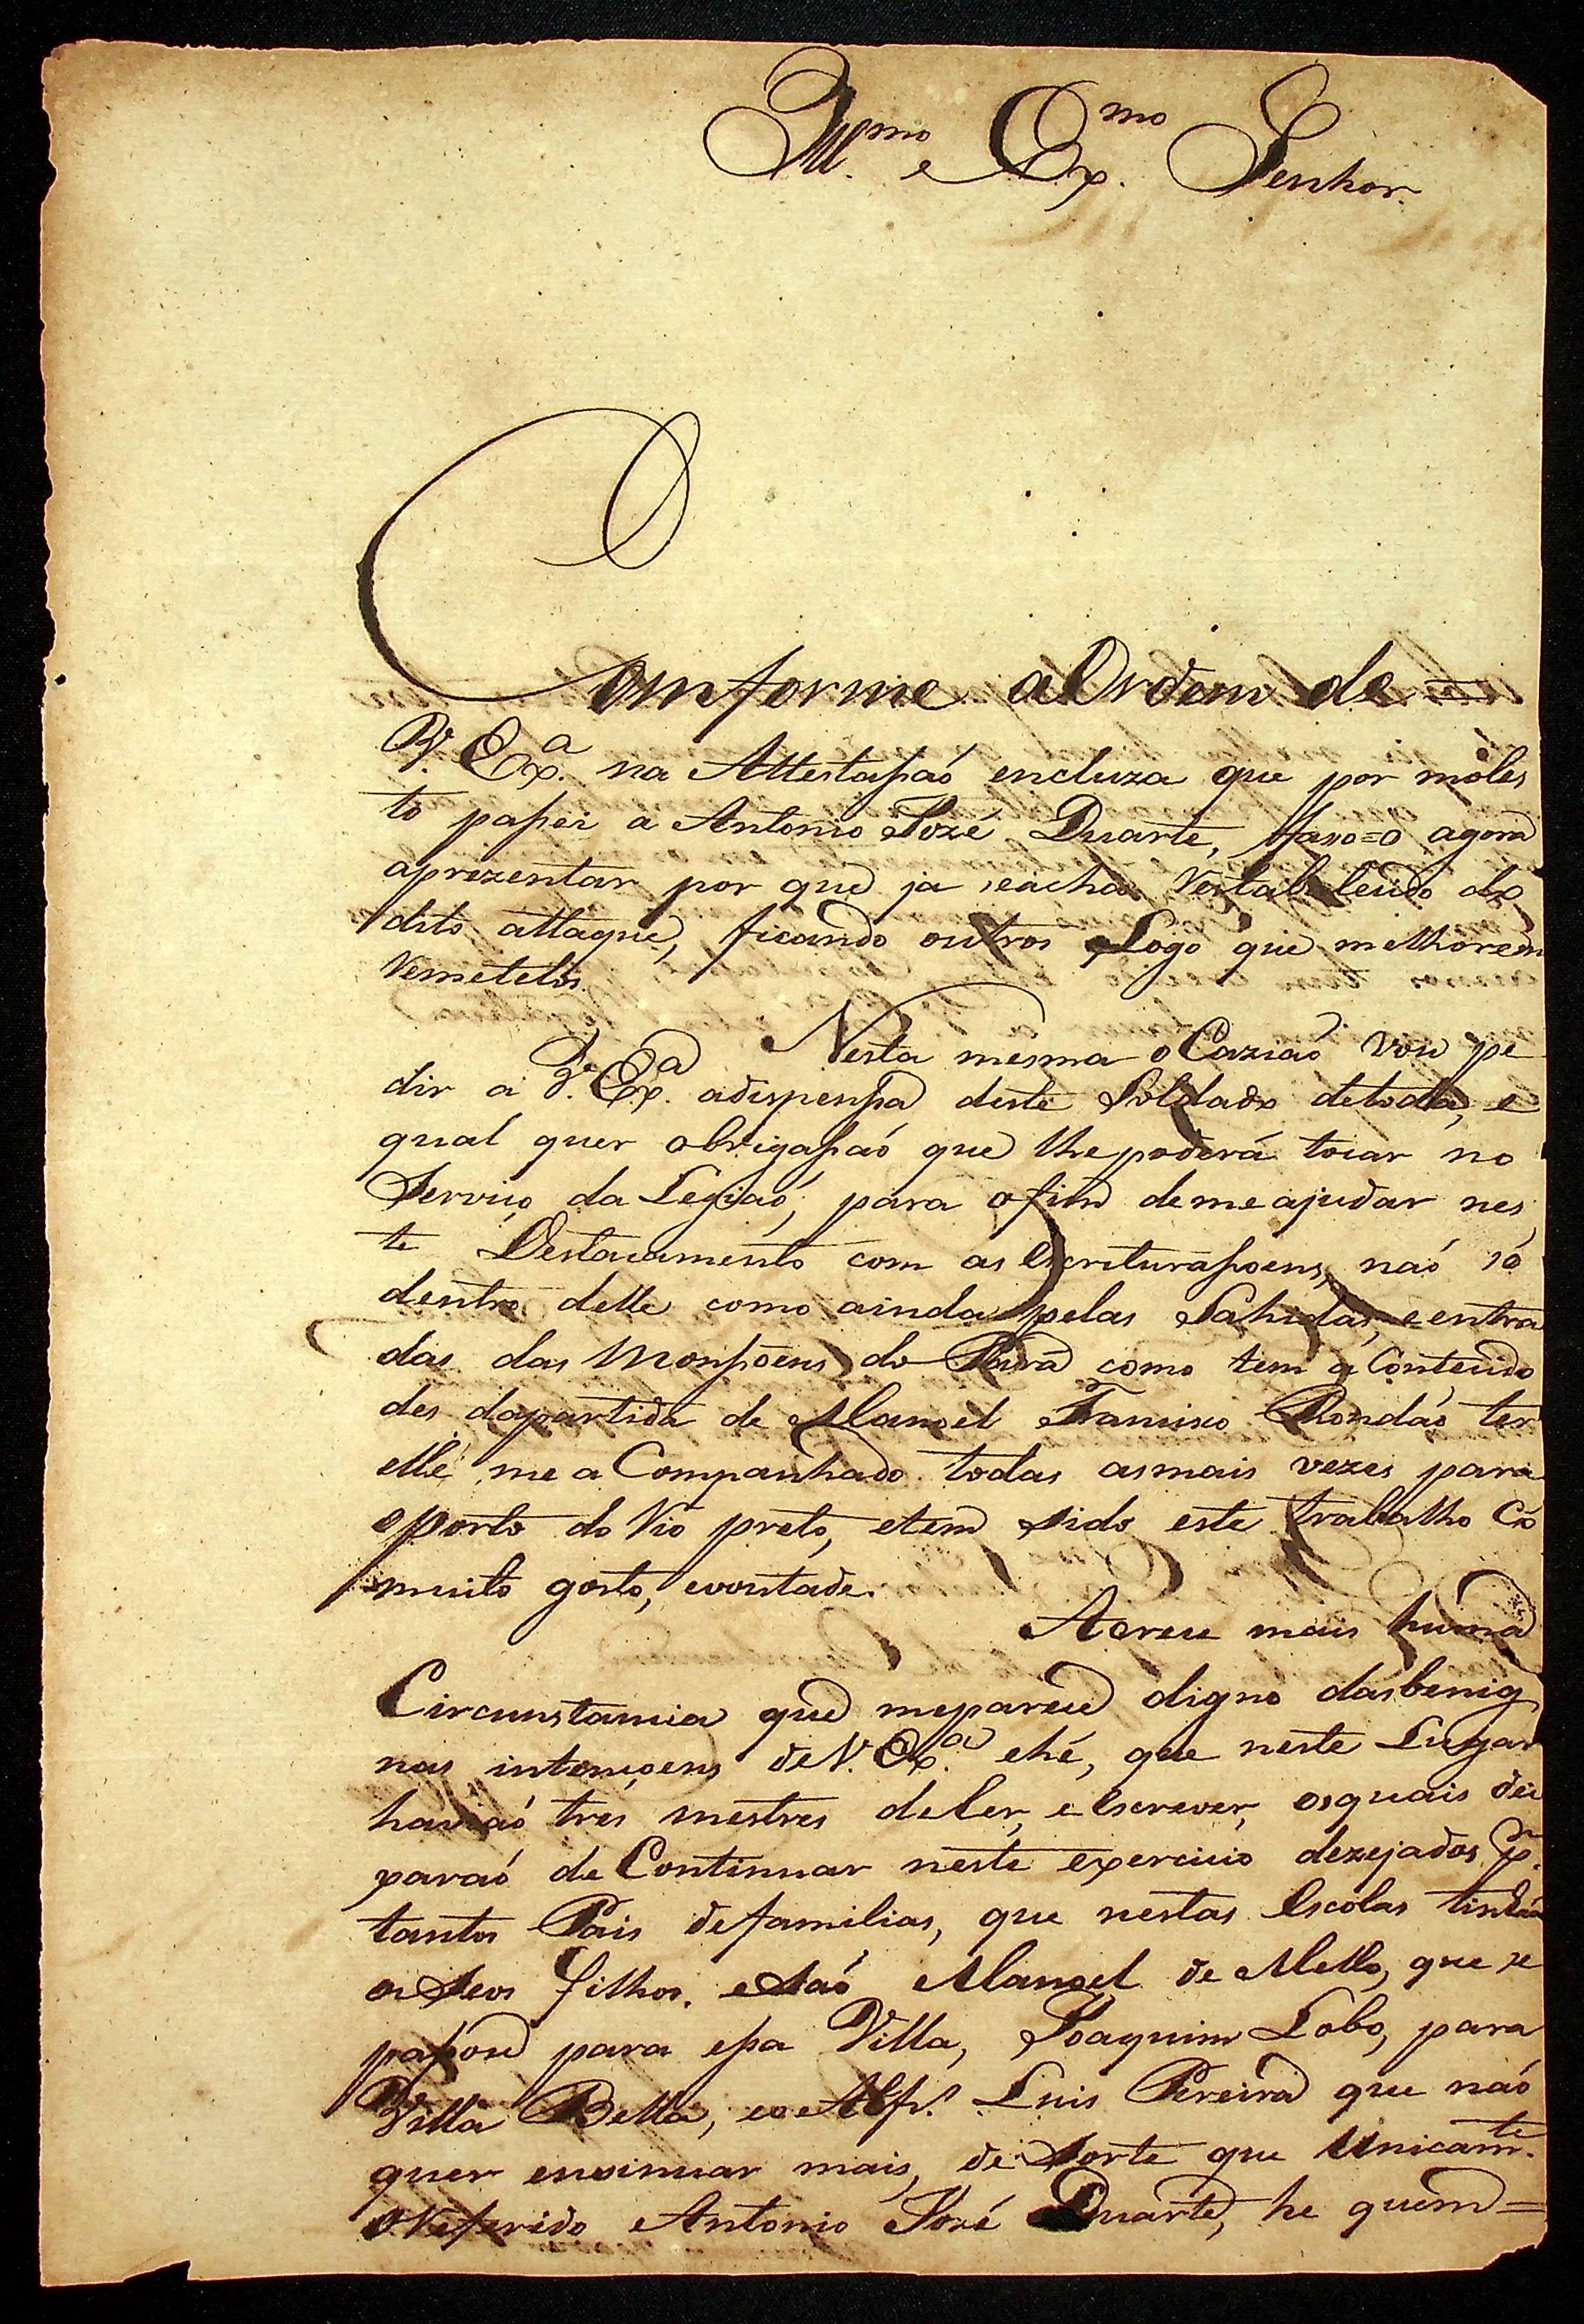 Ill.mo e Ex.mo Senhor.
Comforme aOrdem de =
V. Ex.a na Attestassaó encluza que por moles
to passei a Antonio Jozé Duarte, fasso=o agora
aprezentar por que ja seacha Restabelecido do
dito attaque, ficando outros Logo que melhorem
Remetelos.
Nesta mesma oCaziaó vou pe
dir a V. Ex.a adispenssa deste Soldado detoda, e
qual quer obrigassaó que lhe poderá tocar no
Serviço da Legiaó, para ofim demeajudar nes
te Destacamento com as Escriturassoens, naó só
dentro delle como ainda pelas Sahidas, e entra
das das Monssoens do Pará como tem aContecido
des dapartida de Manoel Francisco Rondaó ter
elle me aCompanhado todas asmais vezes para
oporto do Rio preto, etem sido este trabalho Cõ
muito gosto, evontade.
Acrece mais huma
Circunstancia que mepareceo digno dasbenig
nas intençoens deV. Ex.a ehé, que neste Lugar
haviaó tres mestres deler, e Escrever, osquais dei
xaraó de Continuar neste exercicio dezejados p.r
tantos Pais defamilias, que nestas Escolas tinhaó
os Seos filhos. eSaó Manoel de Mello, que se
passou para essa Villa, Joaquim Lobo, para
Villa Bella, eo Alf.s Luis Pereira que naó
quer ensinuar mais, de Sorte que Unicam.te
oReferido Antonio Jozé Duarte, he quem =